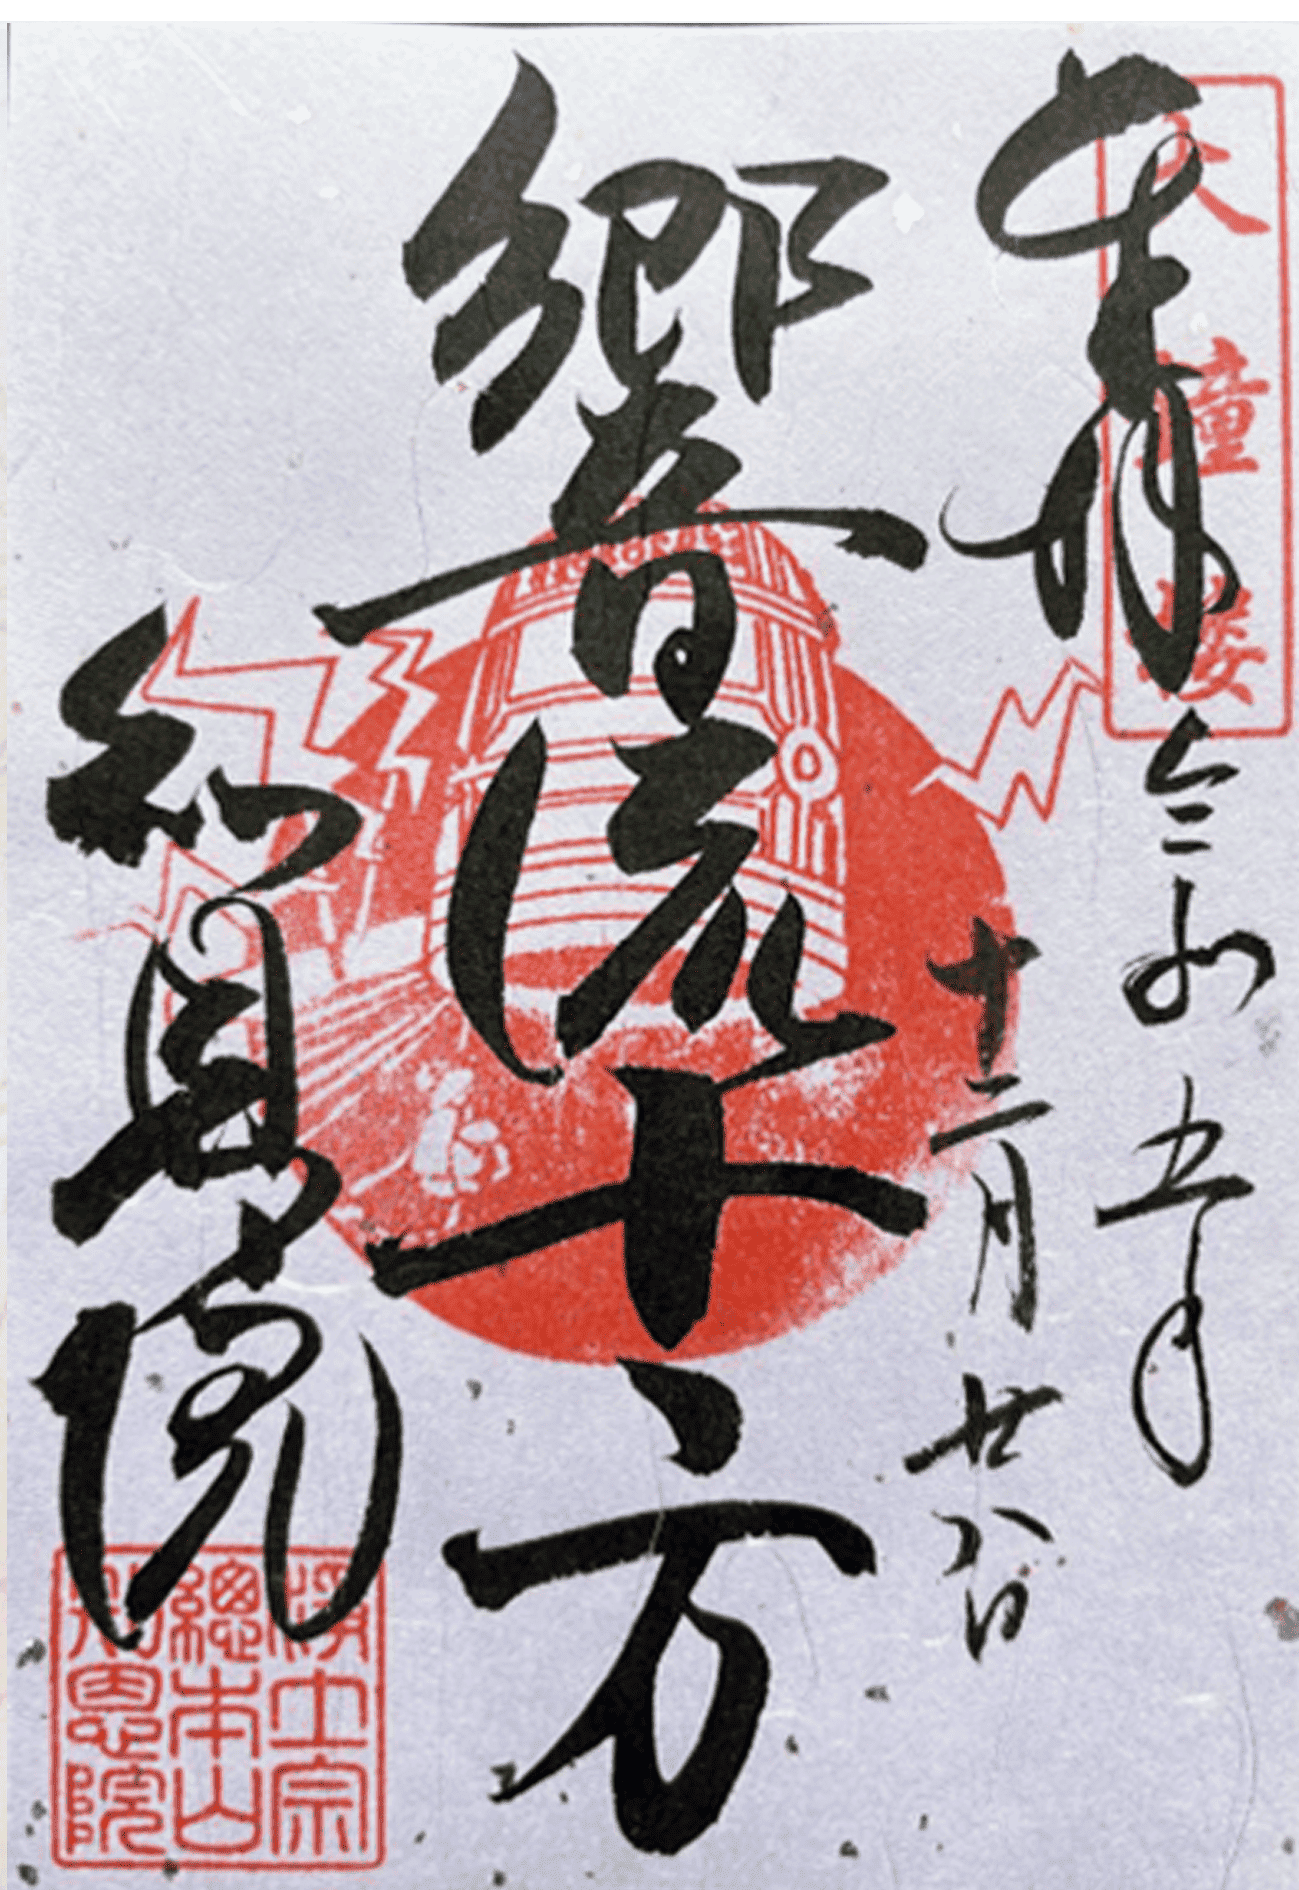 大鐘楼
奉拝
令和五年
十二月廿八日
響流十方
知恩院
淨土宗
總本山
知恩院